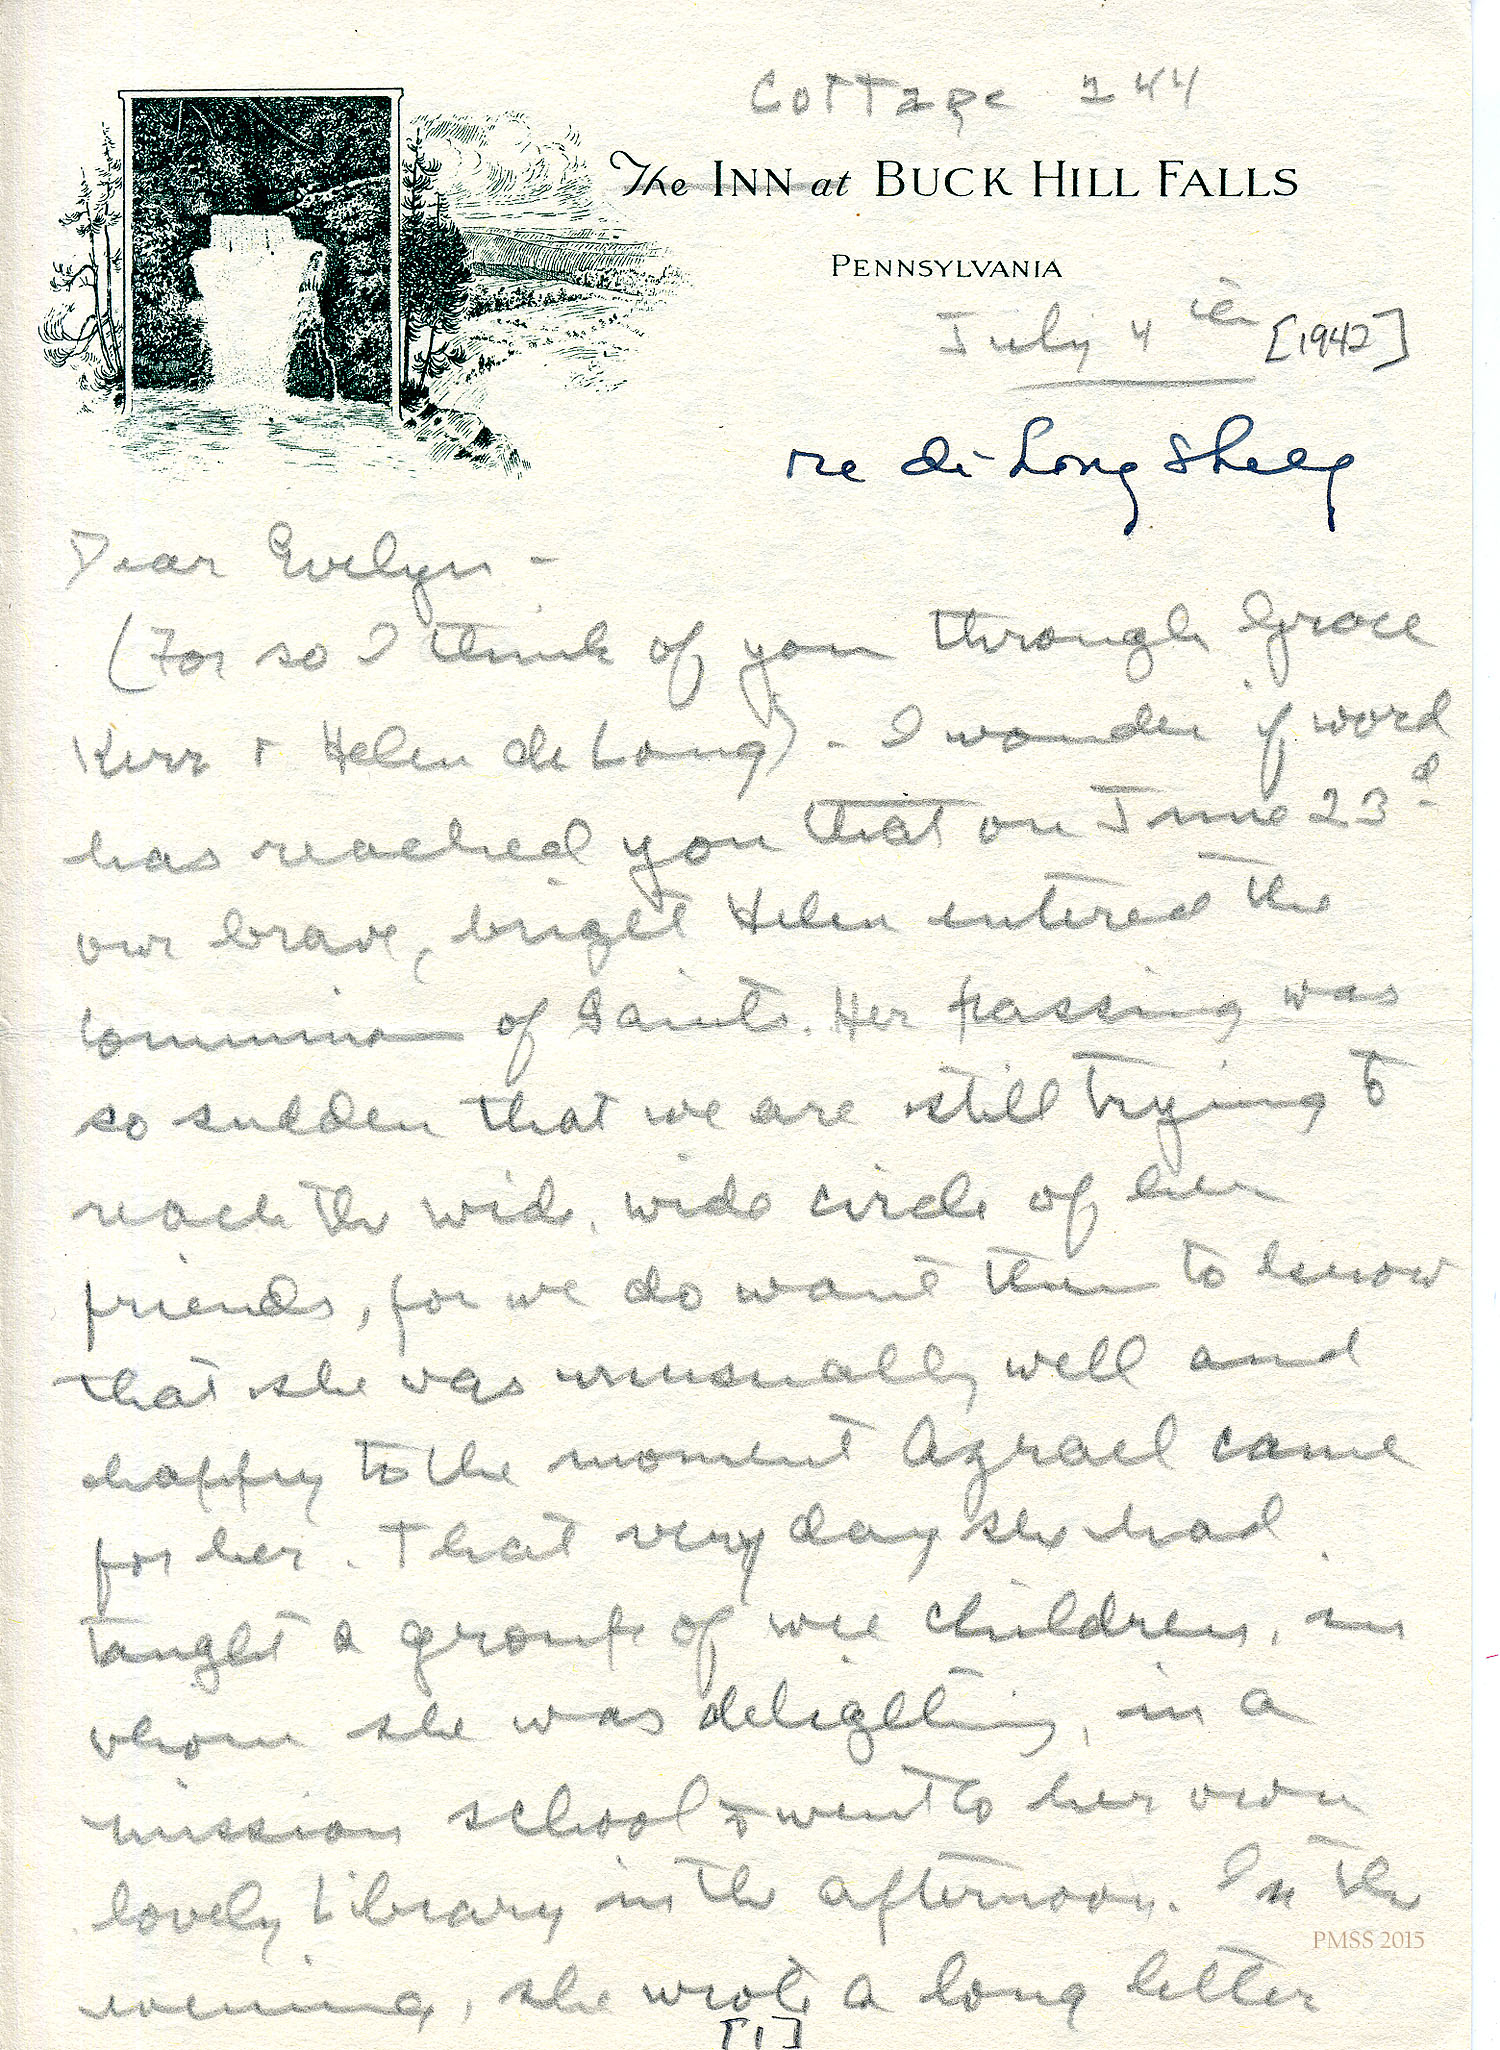 Cottage 244
The INN at BUCK HILL FALLS
PENNSYLVANIA
July 4th [1942]
re de Long Shelf
Dear Evelyn -
(For so I think of you through Grace
Kerr + Helen de Long) - I wonder if word
has reached you that on June 23d
our brave, bright Helen entered the
Communion of Saints. Her passing was
so sudden that we are still trying to
reach the wide, wide circle of her
friends, for we do want them to know
that she was unusually well and
happy to the moment Azrael came
for her. That very day she had
taught a group of wee children, in
whom she was delighting, in a
mission school + went to her own
lovely Library in the afternoon. In the
evening, she wrote a long letter
[1]
PMSS 2015